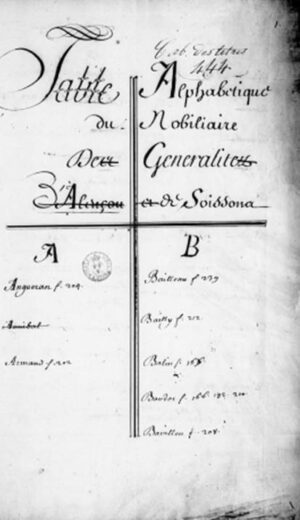 Cab. des titres
444
1
Table Alphabetique
du Nobiliaire
Des Generalites
D'Alençon et de Soissons
A B
Angueran f. 204
Annibal
Armand f. 202
Bailleau f. 279
Bailly f. 212
Balin f. 168
Baudor f. 166. 182. 200
Barillon f. 208.